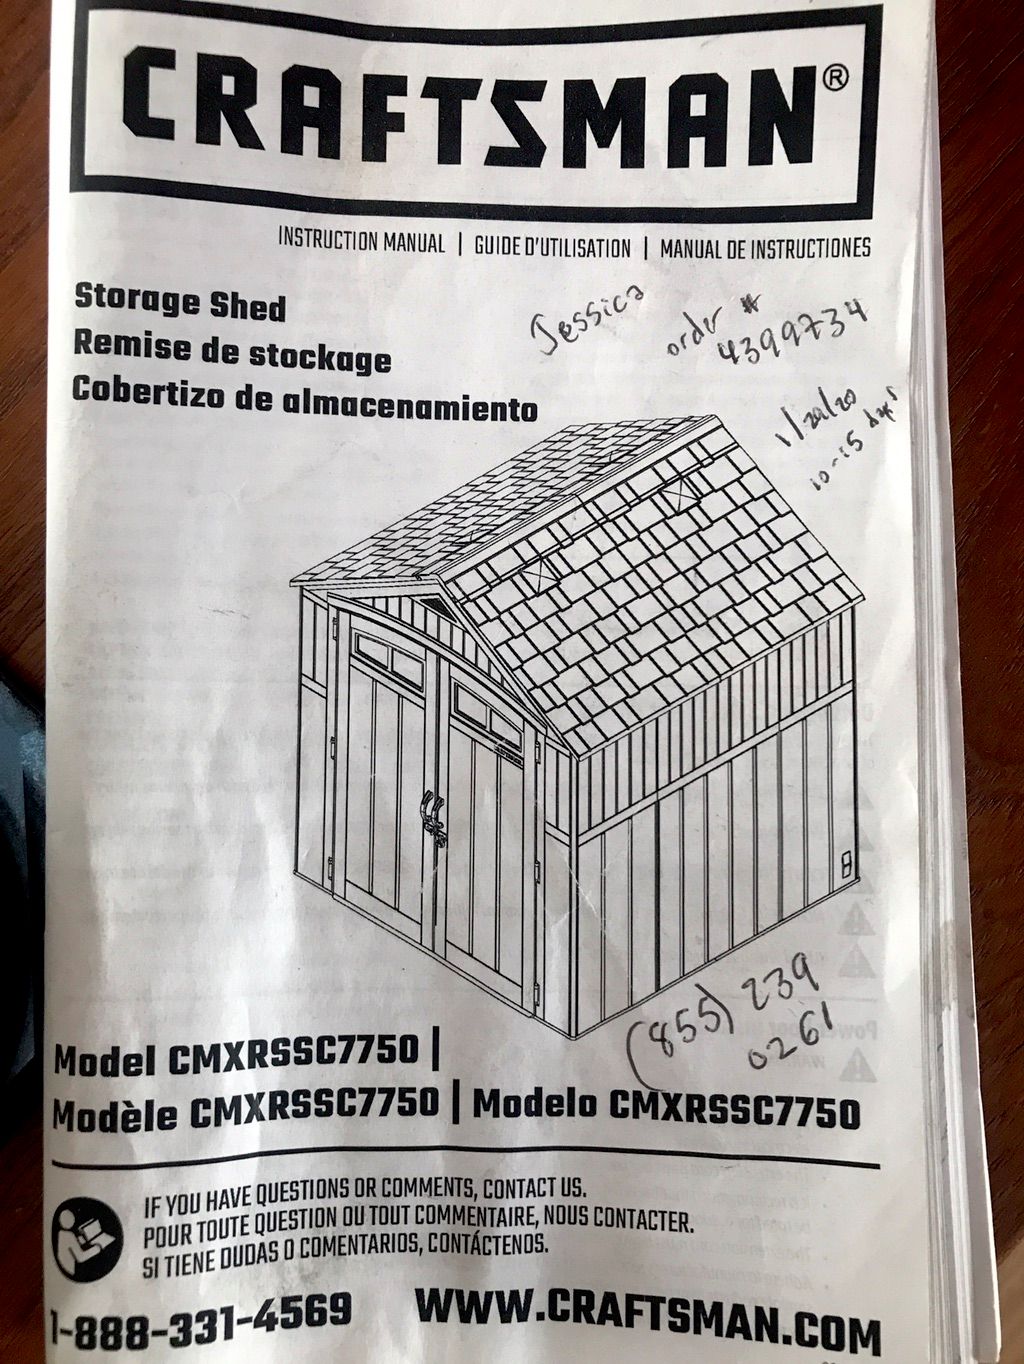 CRAFTSMAN®
INSTRUCTION MANUAL | GUIDE D'UTILISATION | MANUAL DE INSTRUCTIONES
Storage Shed
Remise de stockage
Cobertizo de almacenamiento
Jessica
order #
4399734
1/20/20
10-15 days
(855) 239
0261
Model CMXRSSC7750 |
Modèle CMXRSSC7750 | Modelo CMXRSSC7750
IF YOU HAVE QUESTIONS OR COMMENTS, CONTACT US.
POUR TOUTE QUESTION OU TOUT COMMENTAIRE, NOUS CONTACTER.
SI TIENE DUDAS O COMENTARIOS, CONTÁCTENOS.
1-888-331-4569 WWW.CRAFTSMAN.COM